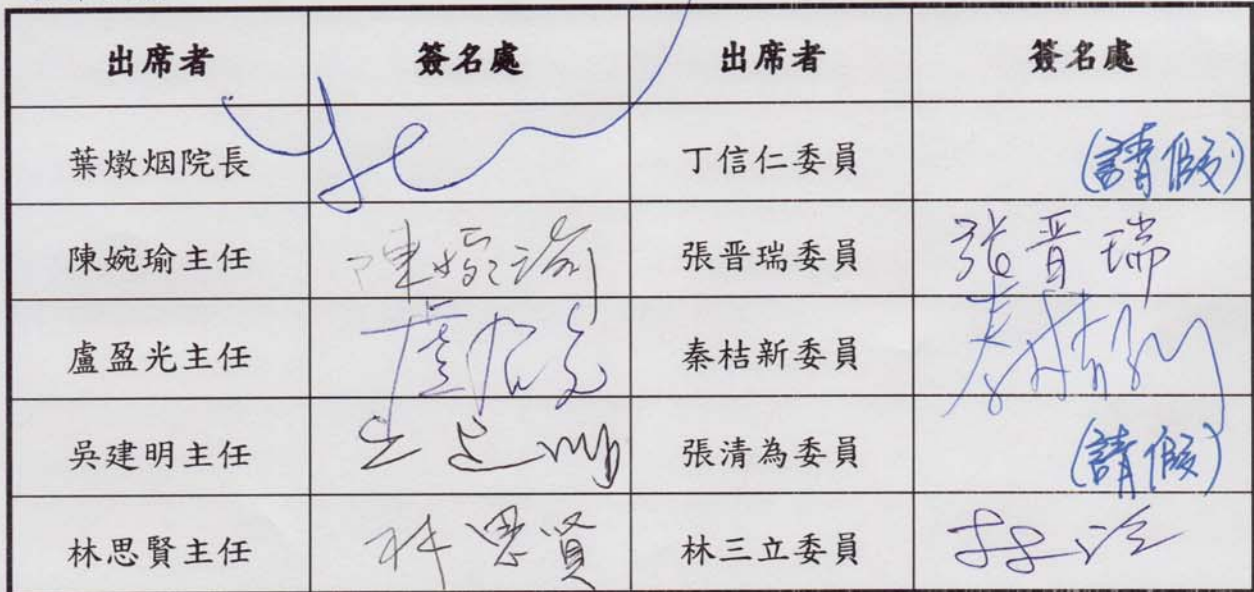 出席者 簽名處 出席者 簽名處
葉燉烟院長 丁信仁委員 (請假)
陳婉瑜主任 陳婉瑜 張晋瑞委員 張晋瑞
盧盈光主任 秦枯新委員
吳建明主任 張清為委員 (請假)
林思賢主任 林思賢 林三立委員